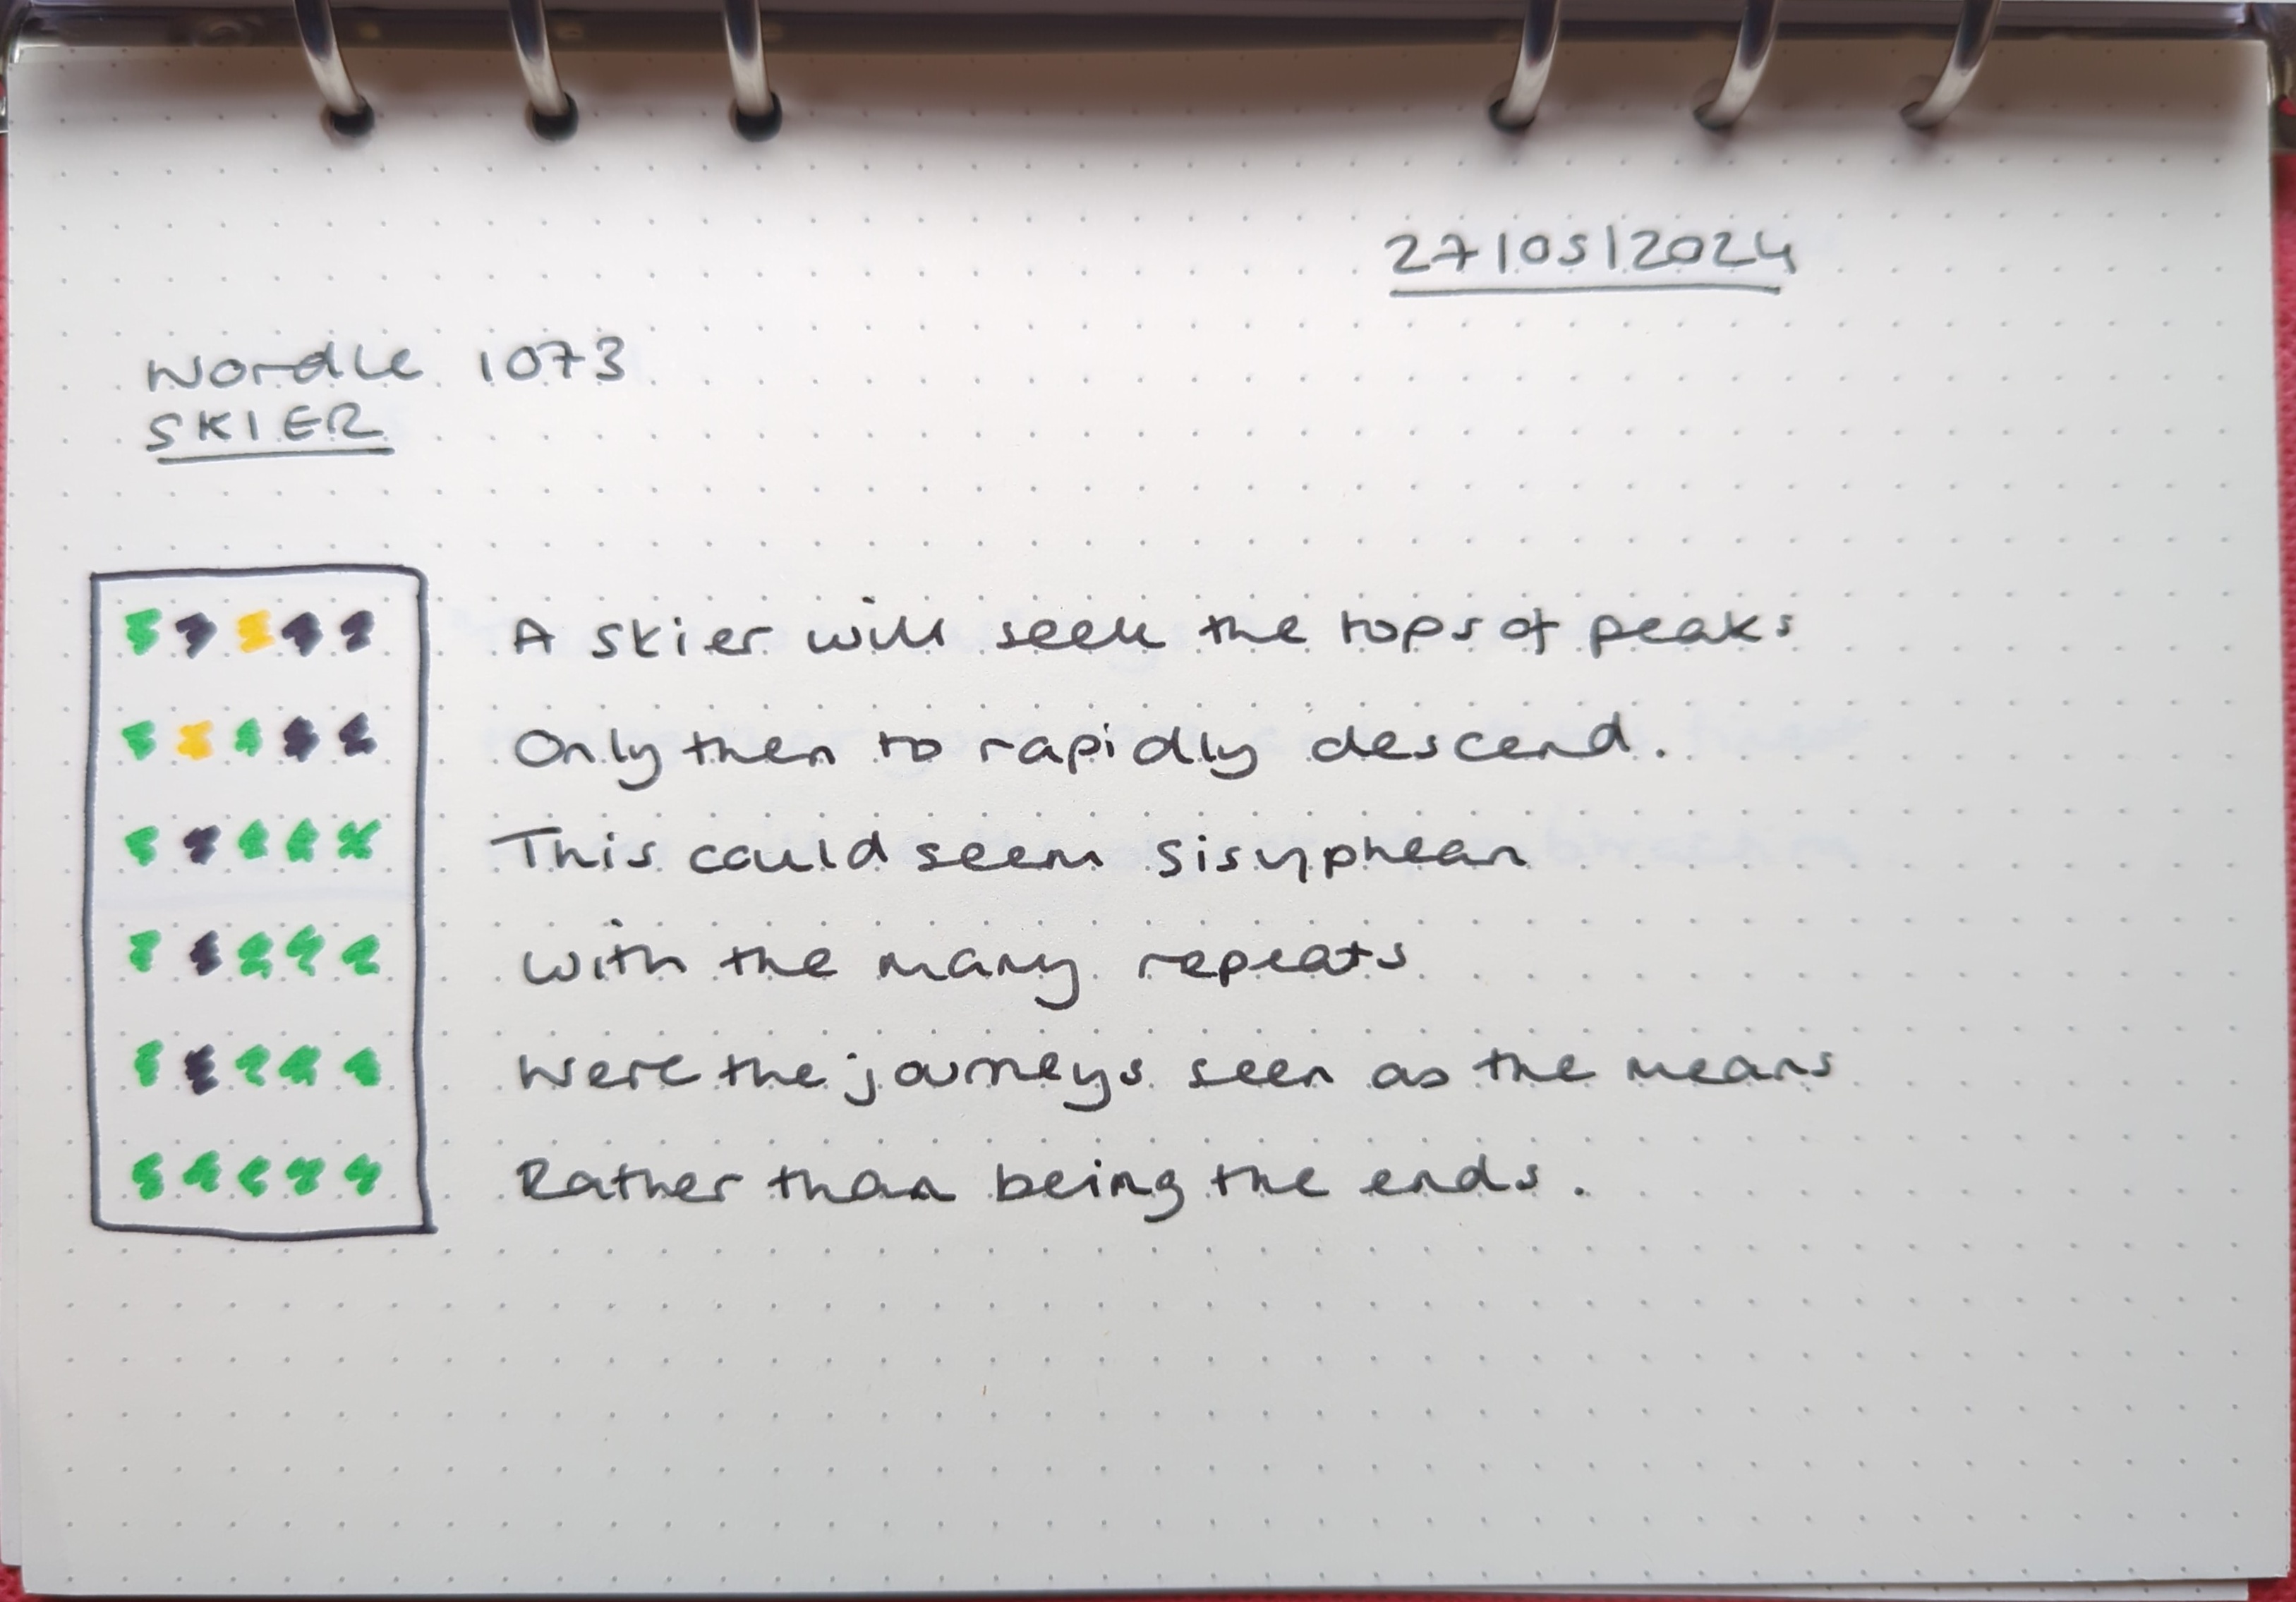 27/05/2024
Wordle 1073
SKIER
A skier will seek the tops of peaks
Only then to rapidly descend.
This could seem sisyphean
with the many repeats
Were the journeys seen as the means
Rather than being the ends.